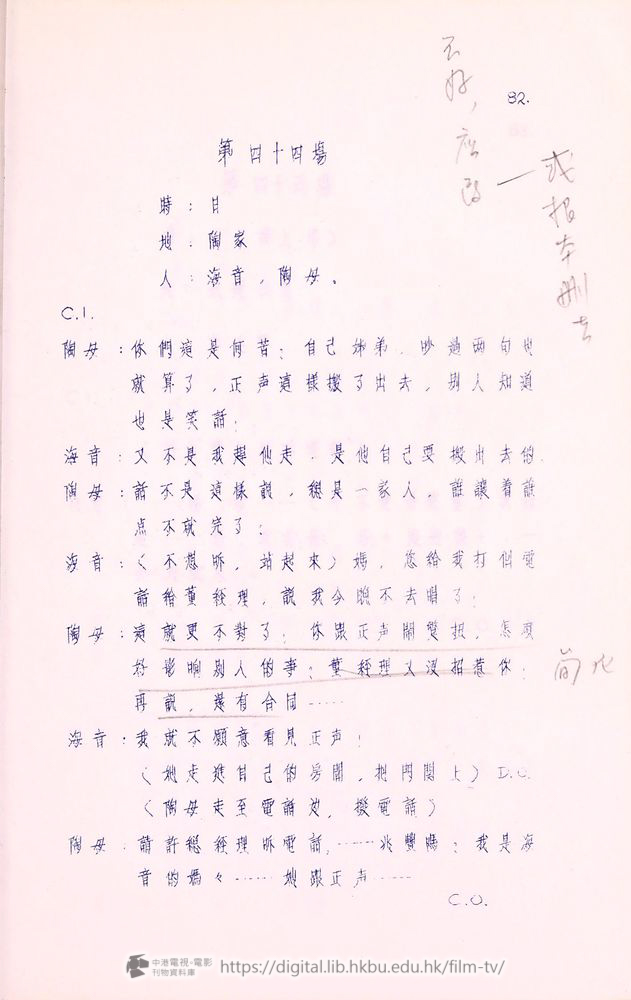 82.
不好，
或根本刪去
第四十四場
時：日
地：陶家
人：海音，陶母。
C.I.
陶母：你們這是何苦；自己姊弟，吵過两句也
就算了，正声這樣搬了出去，别人知道
也是笑話；
海音：又不是我趕他走，是他自己要搬出去的
陶母：話不是這樣說，總是一家人，誰讓着誰
点不就完了；
海音：（不想听，站起来）媽，您給我打個電
話給董經理，說我今晚不去唱了；
陶母：這就更不對了；你跟正声鬧彆扭，怎麼
好影响别人的事；葉經理又沒招惹你；
再說，還有合同……
簡化
海音：我就不願意看見正声！
（她走進自己的房間，把門関上）D.O.
（陶母走至電話边，撥電話）
陶母：請許總經理听電話，……兆豐嗎？我是海
音的媽々……她跟正声……
C.O.
中港電視·電影
刊物資料庫
https://digital.lib.hkbu.edu.hk/film-tv/